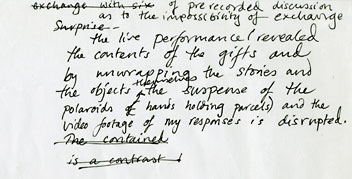 exchange with six of prerecorded discussion
as to the impossibility of exchange
Surprise -
the live performance (revealed
the contents of the gifts and
by unwrapping the stories and
the objects themselves the suspense of the
polaroids (of hands holding parcels) and the
video footage of my responses is disrupted.
The contained
is a contrast